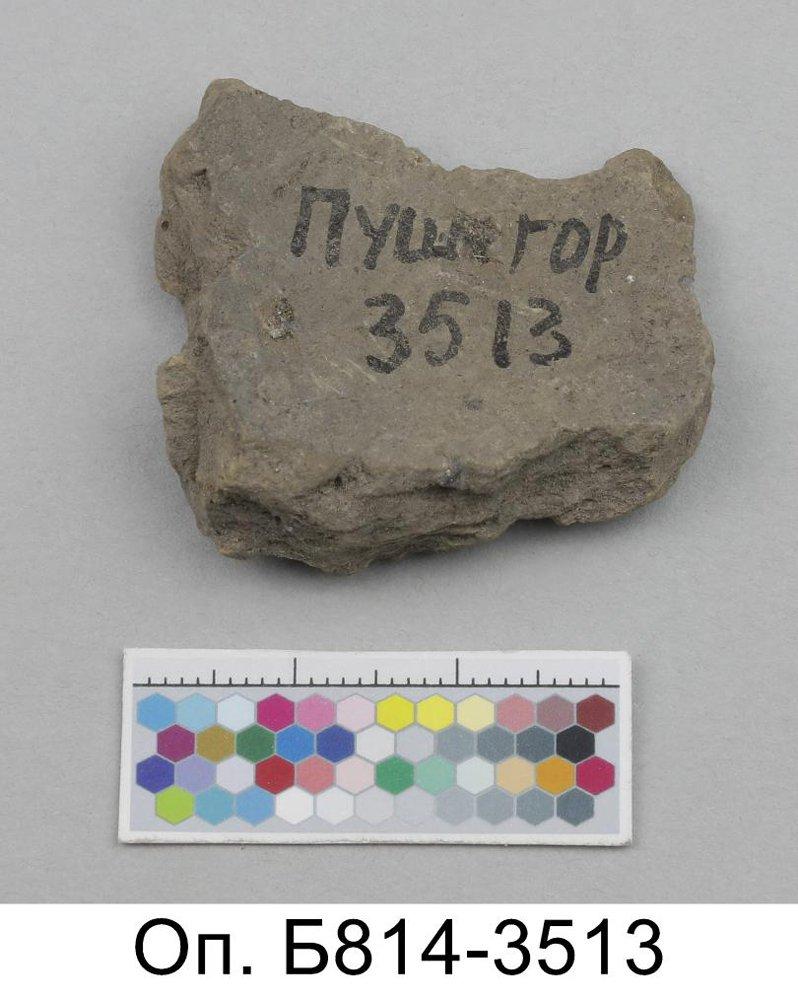 Пушк гор
3513
Оп. Б814-3513